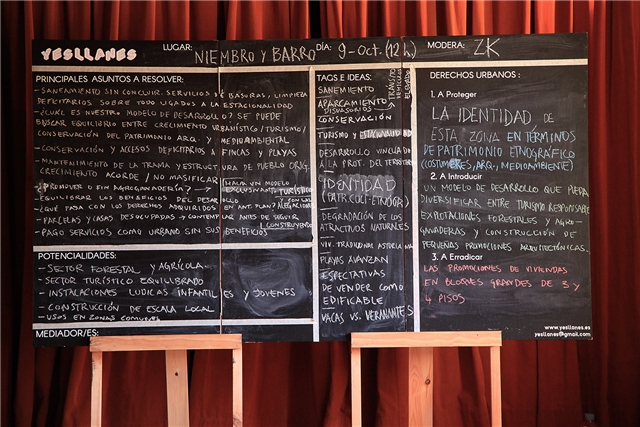 YESLLANES
LUGAR: NIEMBRO Y BARRO
DÍA: 9-OCT. (12 h)
MODERA: ZK
PRINCIPALES ASUNTOS A RESOLVER:
- SANEAMIENTO SIN CONCLUIR. SERVICIOS BASURAS, LIMPIEZA
DEFICITARIOS SOBRE TODO LIGADOS A LA ESTACIONALIDAD
- ¿CUÁL ES NUESTRO MODELO DE DESARROLLO? SE PUEDE
BUSCAR EQUILIBRIO ENTRE CRECIMIENTO URBANÍSTICO / TURISMO /
CONSERVACIÓN DEL PATRIMONIO ARQ. Y MEDIOAMBIENTAL
- CONSERVACIÓN Y ACCESOS DEFICITARIOS A FINCAS Y PLAYAS
- MANTENIMIENTO DE LA TRAMA Y ESTRUCTURA DE PUEBLO ORIG.
CRECIMIENTO ACORDE / NO MASIFICAR
¿PROMOVER O FIN AGROGANADERÍA? → HACIA UN MODELO EXCLUSIVAMENTE TURÍSTICO
- EQUILIBRAR LOS BENEFICIOS DEL DESARROLLO
¿QUÉ PASA CON LOS DERECHOS ADQUIRIDOS EN ANT. PLAN?
- PARCELAS Y CASAS DESOCUPADAS → CONTEMPLAR ANTES DE SEGUIR CONSTRUYENDO
- PAGO SERVICIOS COMO URBANO SIN SUS BENEFICIOS
POTENCIALIDADES:
- SECTOR FORESTAL Y AGRÍCOLA
- SECTOR TURÍSTICO EQUILIBRADO
- INSTALACIONES LUDICAS INFANTILES Y JOVENES
- CONSTRUCCIÓN DE ESCALA LOCAL
- USOS EN ZONAS COMUNES
MEDIADOR/ES:
TAGS E IDEAS:
SANEMIENTO
APARCAMIENTO
DISUASORIOS
CONSERVACIÓN
TURISMO Y ESTACIONALIDAD
DESARROLLO VINCULADO
A LA PROT. DEL TERRITORIO
IDENTIDAD
(PATR. CULT-ETNOGR)
DEGRADACIÓN DE LOS
ATRACTIVOS NATURALES
VIV. TRADICIONAL ASTURIANA
PLAYAS AVANZAN
ESPECTATIVAS
DE VENDER COMO
EDIFICABLE
VACAS VS. VERANEANTES
DERECHOS URBANOS :
1. A Proteger
LA IDENTIDAD DE
ESTA ZONA EN TÉRMINOS
DE PATRIMONIO ETNOGRÁFICO
(COSTUMBRES, ARQ., MEDIOAMBIENTE)
2. A Introducir
UN MODELO DE DESARROLLO QUE PUEDA
DIVERSIFICAR ENTRE TURISMO RESPONSABLE
EXPLOTACIONES FORESTALES Y AGRO-
GANADERAS Y CONSTRUCCIÓN DE
PEQUEÑAS PROMOCIONES ARQUITECTÓNICAS.
3. A Erradicar
LAS PROMOCIONES DE VIVIENDAS
EN BLOQUES GRANDES DE 3 Y
4 PISOS
www.yesllanes.es
yesllanes@gmail.com